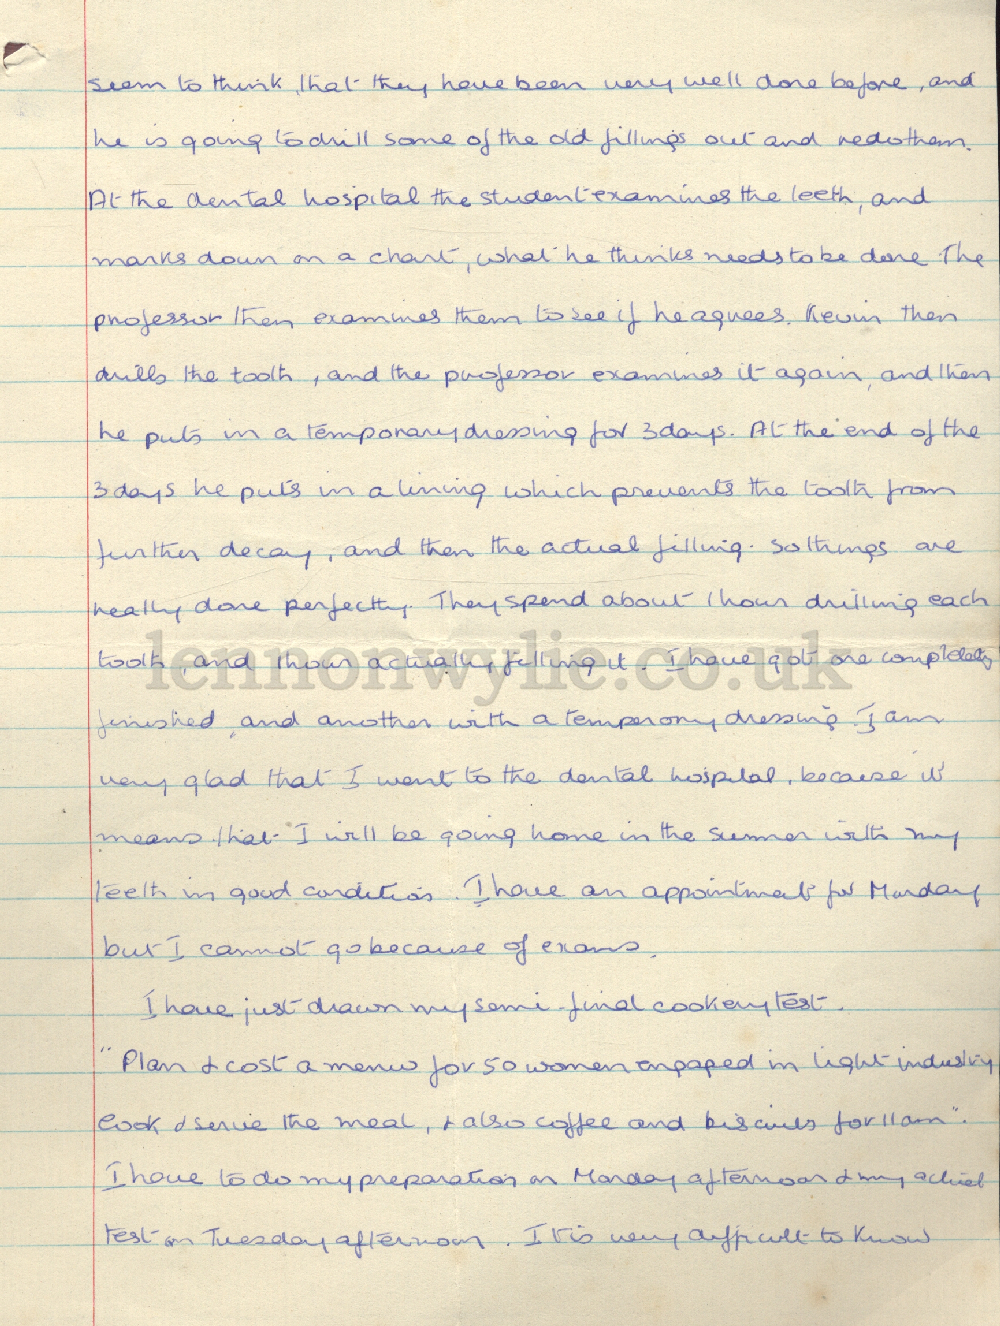 seem to think, that they have been very well done before, and
he is going to drill some of the old fillings out and redo them.
At the dental hospital the student examines the teeth, and
marks down on a chart, what he thinks needs to be done. The
professor then examines them to see if he agrees. Kevin then
drills the tooth, and the professor examines it again, and then
he puts in a temporary dressing for 3 days. At the end of the
3 days he puts in a lining which prevents the tooth from
further decay, and then the actual filling. So things are
really done perfectly. They spend about 1 hour drilling each
tooth, and 1 hour actually filling it. I have got one completely
lennonwylie.co.uk
finished, and another with a temperory dressing. I am
very glad that I went to the dental hospital, because it
means that I will be going home in the summer with my
teeth in good condition. I have an appointment for Monday
but I cannot go because of exams.
I have just drawn my semi-final cookery test.
"Plan & cost a menu for 50 women engaged in light industry
Cook & serve the meal, & also coffee and biscuits for 11am".
I have to do my preparation on Monday afternoon & my actual
test on Tuesday afternoon. It is very difficult to know